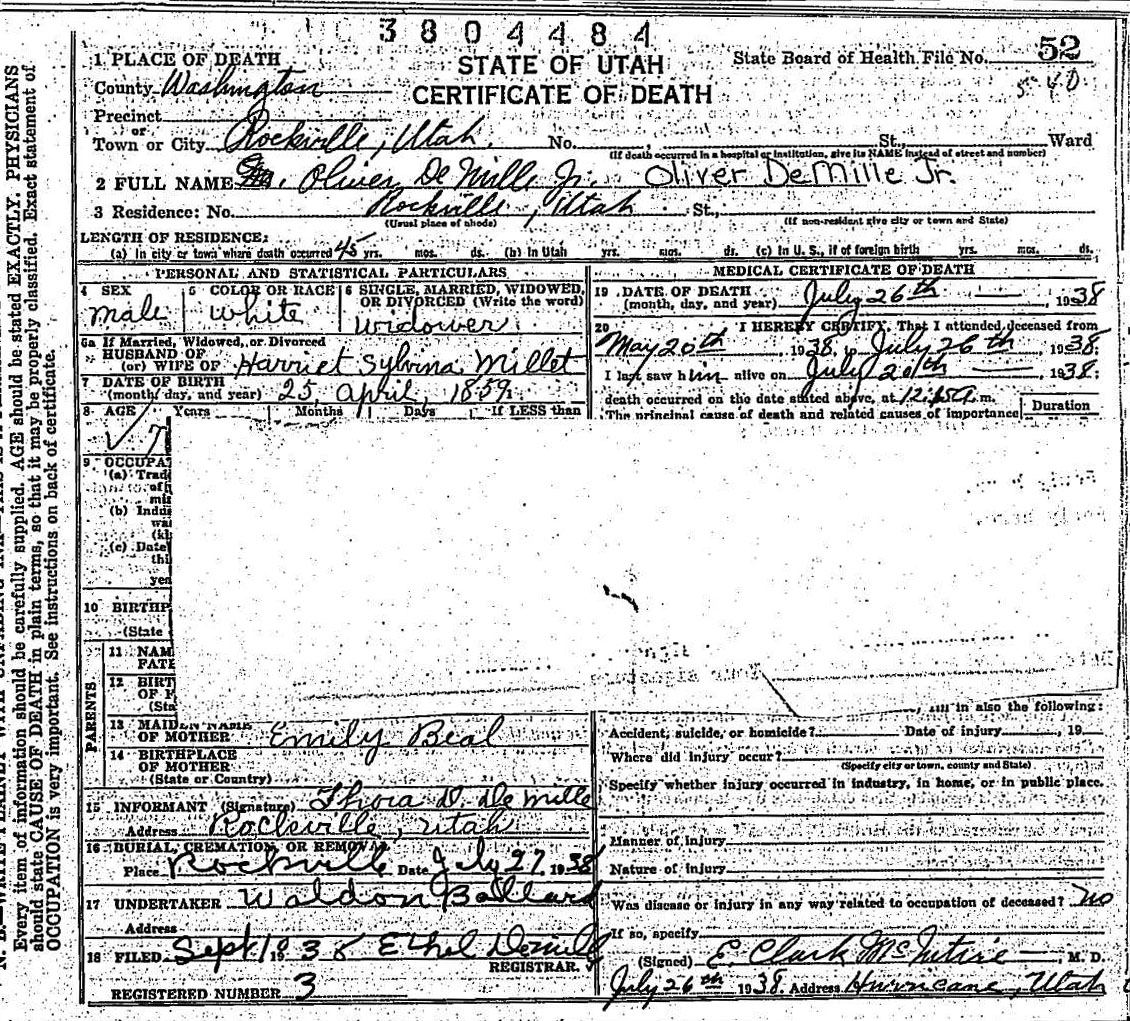 3804484
STATE OF UTAH
State Board of Health File No. 52
CERTIFICATE OF DEATH
1 PLACE OF DEATH
County Washington
Precinct
or
Town or City Rockville, Utah. No. , St., Ward
(If death occurred in a hospital or institution, give its NAME instead of street and number)
2 FULL NAME Oliver DeMille Jr. Oliver DeMille Jr.
3 Residence: No. Rockville, Utah St.,
(Usual place of abode) (If non-resident give city or town and State)
LENGTH OF RESIDENCE:
(a) In city or town where death occurred 45 yrs. mos. ds. (b) In Utah yrs. mos. ds. (c) In U. S., if of foreign birth yrs. mos. ds.
PERSONAL AND STATISTICAL PARTICULARS
4 SEX 5 COLOR OR RACE 6 SINGLE, MARRIED, WIDOWED, OR DIVORCED (Write the word)
male white widower
6a If Married, Widowed, or Divorced
HUSBAND OF
(or) WIFE OF Harriet Sylvina Millet
7 DATE OF BIRTH
(month, day, and year) 25, April, 1859
8 AGE Years Months Days If LESS than
9 OCCUPA
(a) Trad
of
(b) Indu
(c) Date
thi
yea
10 BIRTHP
(State
PARENTS
11 NAM
FATE
12 BIRT
OF F
(Sta
13 MAIDEN NAME
OF MOTHER Emily Beal
14 BIRTHPLACE
OF MOTHER
(State or Country)
15 INFORMANT (Signature) Thora D. DeMille
Address Rockville, Utah
16 BURIAL, CREMATION, OR REMOVAL
Place Rockville Date July 27, 1938
17 UNDERTAKER Waldon Ballard
Address
18 FILED Sept 1 1938 Ethel Demill
REGISTRAR.
REGISTERED NUMBER 3
MEDICAL CERTIFICATE OF DEATH
19 DATE OF DEATH
(month, day, and year) July 26th 1938
20 I HEREBY CERTIFY, That I attended deceased from
May 20th, 1938, July 26th, 1938.
I last saw him alive on July 20th 1938.
death occurred on the date stated above, at m.
The principal cause of death and related causes of importance Duration
in also the following:
Accident, suicide, or homicide? Date of injury , 19
Where did injury occur?
(Specify city or town, county and State)
Specify whether injury occurred in industry, in home, or in public place.
Manner of injury
Nature of injury
Was disease or injury in any way related to occupation of deceased? no
If so, specify
(Signed) E. Clark McIntire M. D.
July 26th 1938. Address Hurricane, Utah
Every item of information should be carefully supplied. AGE should be stated EXACTLY. PHYSICIANS
should state CAUSE OF DEATH in plain terms, so that it may be properly classified. Exact statement of
OCCUPATION is very important. See instructions on back of certificate.